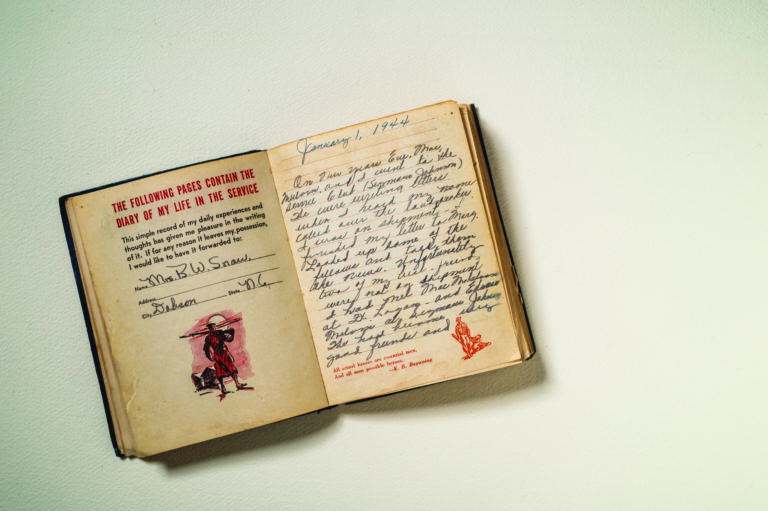 THE FOLLOWING PAGES CONTAIN THE
DIARY OF MY LIFE IN THE SERVICE
This simple record of my daily experiences and
thoughts has given me pleasure in the writing
of it. If for any reason it leaves my possession,
I would like to have it forwarded to:
Name Mrs. B. W. Snow,
Address
City Dobson State N.C.
January 1, 1944
On New Years Eve, Mac,
Melvin, and I went to the
Service Club (Seymour Johnson)
We were writing letters
when I heard my name
called over the loudspeaker
I was on shipment. I
finished my letter to Marg.
Looked up some of the
fellows and told them
the news. Unfortunately
two of my best friends
were not on shipment
I had met Mac
at Ft. Logan and
Melvin at Seymour Johnson
We had become very
good friends and
All actual heroes are essential men,
And all men possible heroes.
—E. B. Browning